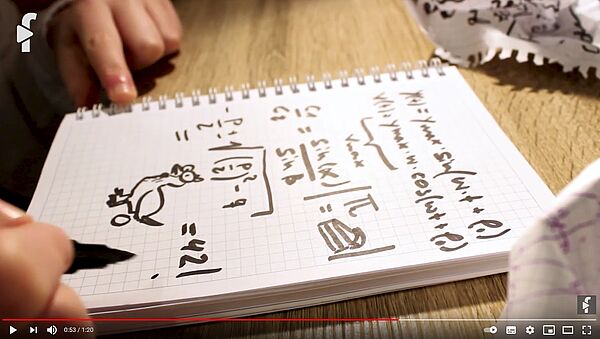 y(t) = ymax · sin(ω·t + φ₀)
v(t) = ymax·ω·cos(ωt + φ₀)
vmax
sin(α)
sin β
π =
-p/2 ± √(p/2)² - q = 42!
0:53 / 1:20